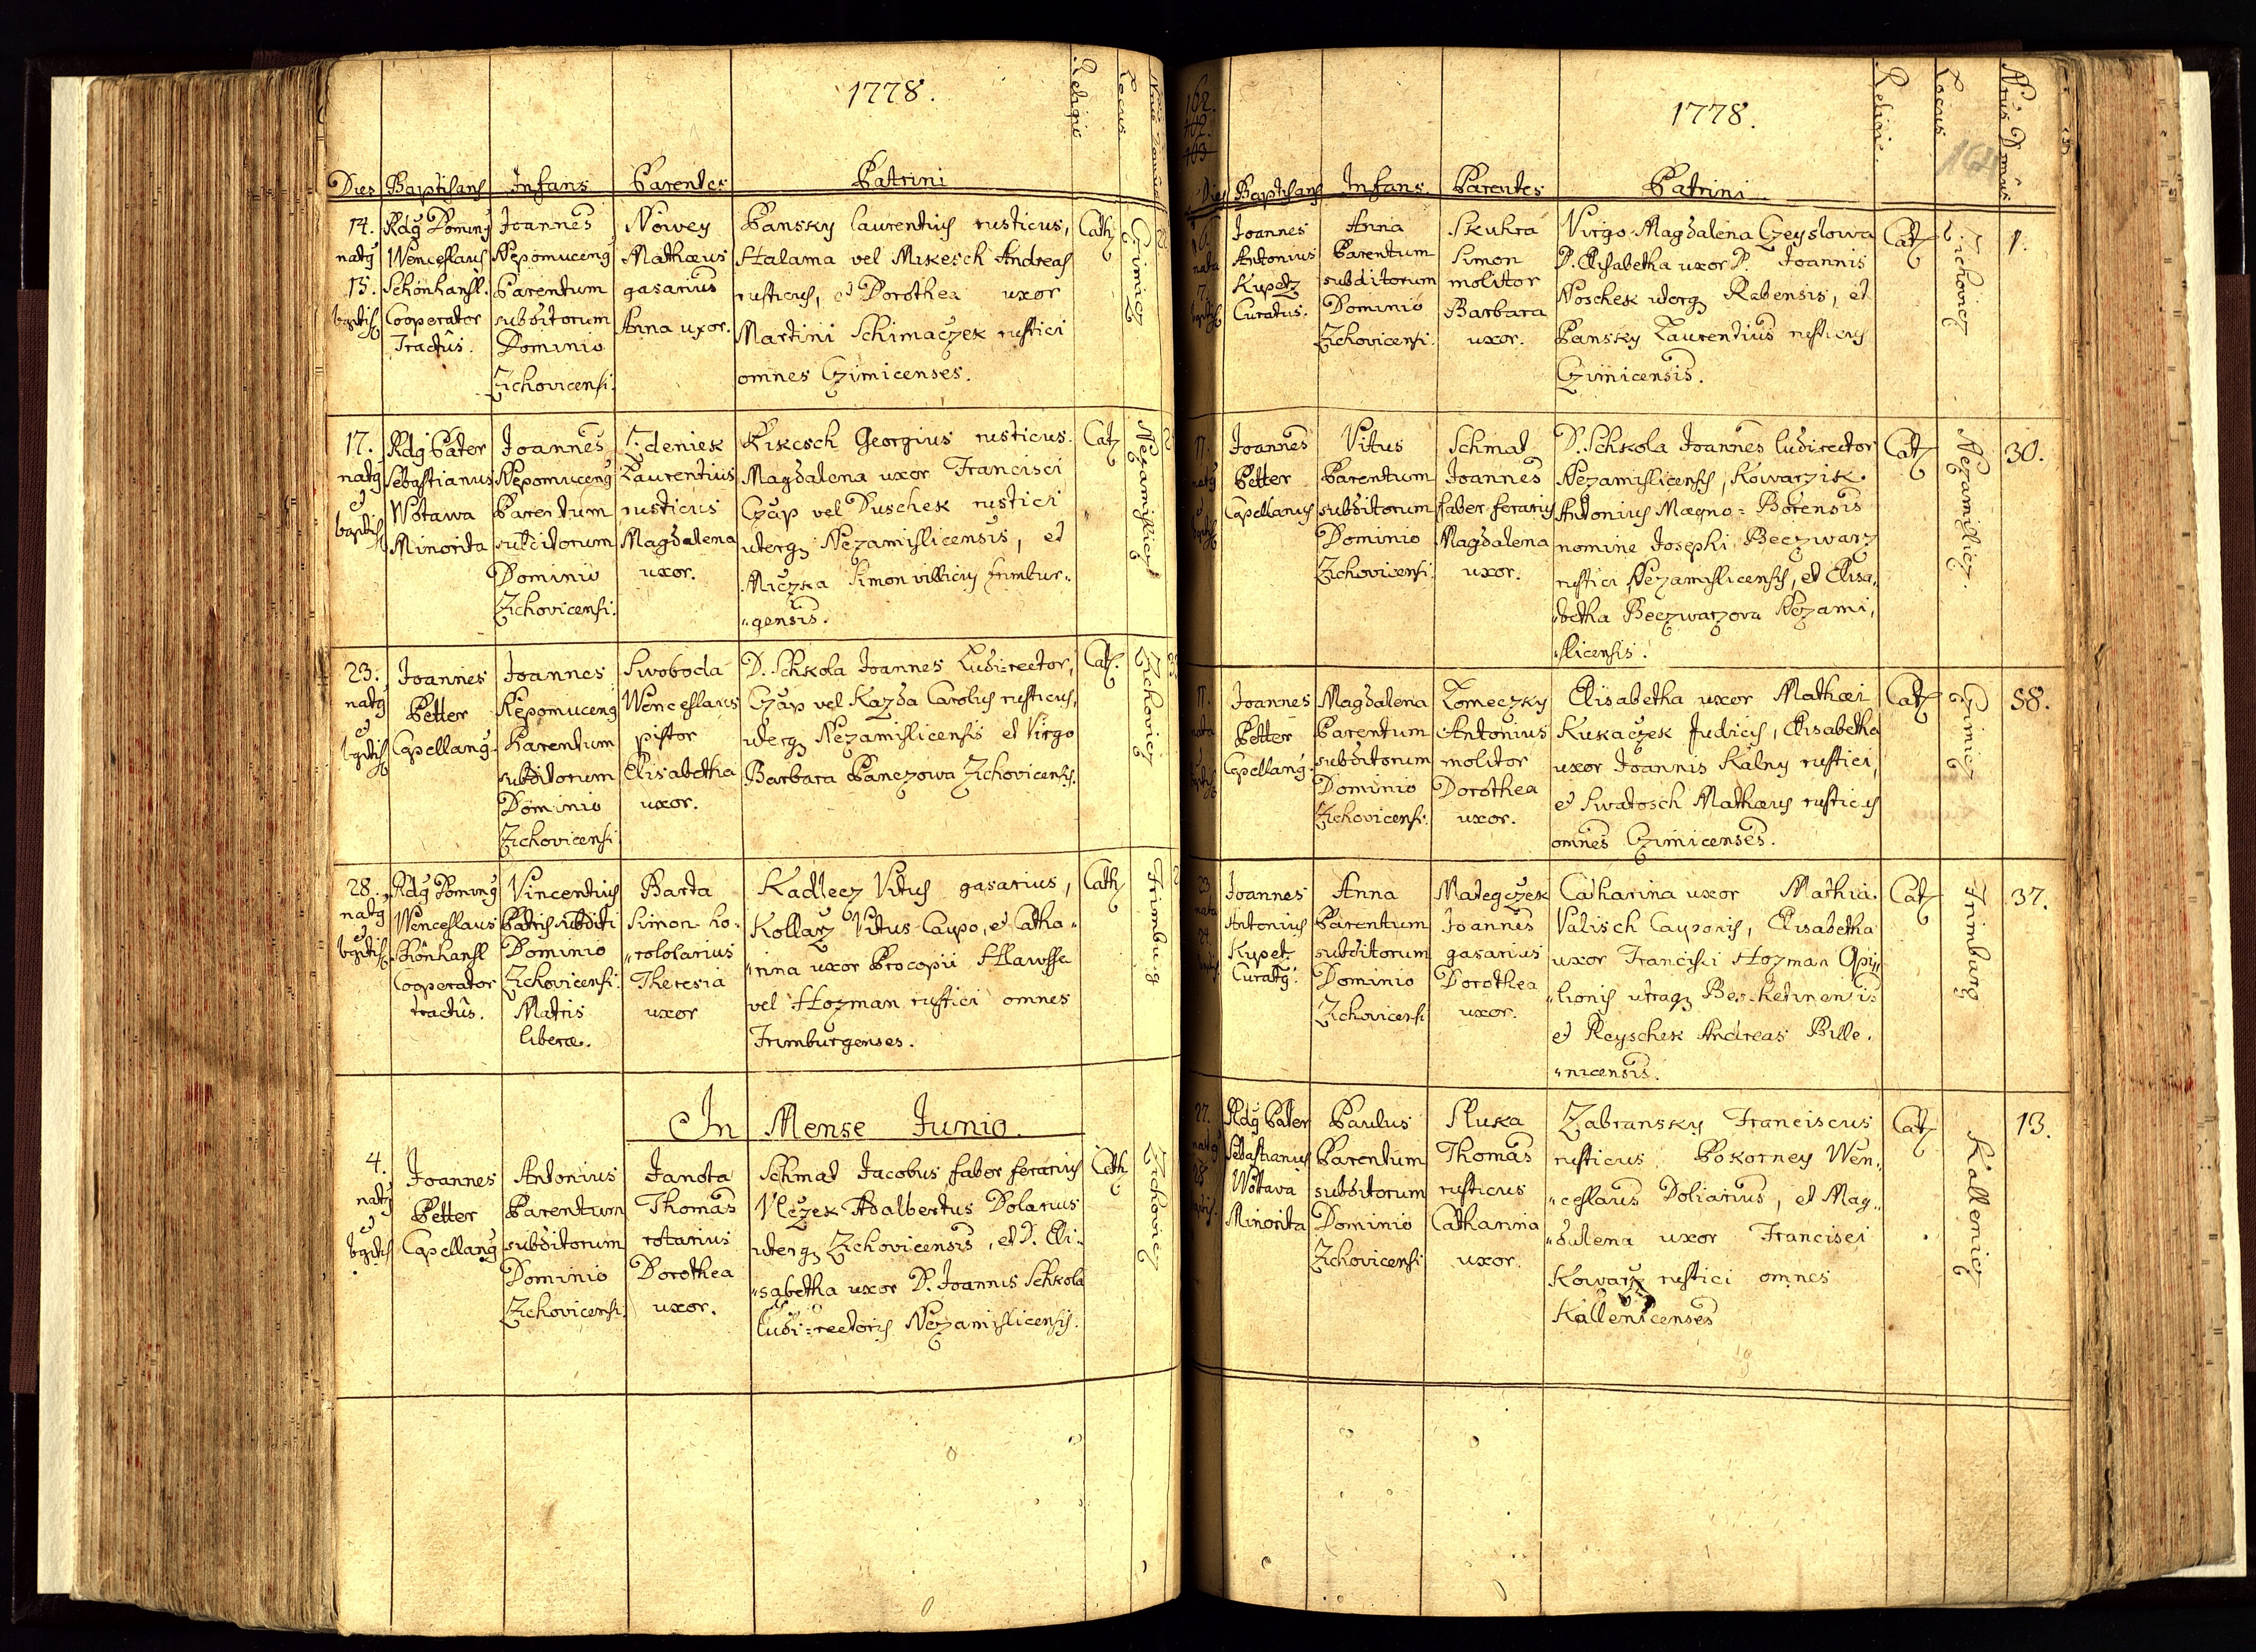 1778.
Religio
Locus
Dies Baptisans Infans Parentes Patrini
14. natg 15. baptis
Rdg Doming
Wenceslaus
Schönhansl.
Cooperator
Tractûs.
Joannes
Nepomuceng
Parentum
subditorum
Dominio
Zichovicensi.
Nowey
Mathæus
gasarius
Anna uxor.
Pansky Laurentius rusticus,
Halama vel Mikesch Andreas
rusticus, et Dorothea uxor
Martini Schimaczek rustici
omnes Czimicenses.
Cath
Czimicz
17.
natg
et
baptis
Rdg Pater
Sebastianus
Wotawa
Minorita
Joannes
Nepomuceng
Parentum
subditorum
Dominio
Zichovicensi.
Zdeniek
Laurentius
rusticus
Magdalena
uxor.
Kikesch Georgius rusticus.
Magdalena uxor Francisci
Czap vel Duschek rustici
uterq Nezamislicensis, et
Miczka Simon villicus Frimbur„
„gensis.
Cat
Nezamislicz
23.
natg
et
bgtis
Joannes
Petter
Capellang.
Joannes
Nepomuceng
Parentum
subditorum
Dominio
Zichovicensi
Swoboda
Wenceslaus
pistor
Elisabetha
uxor.
D. Schkola Joannes Ludi-rector,
Czap vel Kazda Carolus rusticus,
uterq Nezamislicensis et Virgo
Barbara Panczowa Zichovicensis.
Cat.
Zichovicz
28.
natg
et
bgtis
Rdg Doming
Wenceslaus
Schönhansl
Cooperator
tractûs.
Vincentius
Patris subditi
Dominio
Zichovicensi.
Matris
liberæ.
Barta
Simon ho„
„rololarius
Theresia
uxor
Kadlecz Vitus gasarius,
Kollarz Vitus Caupo, et Catha„
„rina uxor Procopii Hlawsse
vel Hozman rustici omnes
Frimburgenses.
Cath
Frimburg
In Mense Junio.
4.
natg
et
bgtis
Joannes
Petter
Capellang
Antonius
Parentum
subditorum
Dominio
Zichovicensi.
Janota
Thomas
rotarius
Dorothea
uxor.
Schmat Jacobus faber ferarius
Vlczek Adalbertus Dolarius
uterq Zichovicensis, et D. Eli„
„sabetha uxor D. Joannis Schkola
ludi-rectoris Nezamislicensis.
Cath
Zichovicz
162.
1778.
Religio.
Locus
Nrus Domûs
Dies Baptisans Infans. Parentes Patrini
Joannes
Antonius
Kupetz
Curatus.
Anna
Parentum
subditorum
Dominio
Zichovicensi.
Skukra
Simon
molitor
Barbara
uxor.
Virgo Magdalena Czeyslowa
D. Elisabetha uxor D. Joannis
Noschek uterq Rabensis, et
Pansky Laurentius rusticus
Czimicensis.
Cat
Zichovicz
1.
Joannes
Petter
Capellanus
Vitus
Parentum
subditorum
Dominio
Zichovicensi.
Schmat
Joannes
faber ferarius
Magdalena
uxor.
D. Schkola Joannes ludirector
Nezamislicensis, Kowarzik
Antonius Magno-Borensis
nomine Josephi Beczwarz
rustici Nezamislicensis, et Elisa„
„betha Beczwarzova Nezami„
„slicensis.
Cat
Nezamislicz.
30.
Joannes
Petter
Capellang.
Magdalena
Parentum
subditorum
Dominio
Zichovicensi.
Lomeczky
Antonius
molitor
Dorothea
uxor.
Elisabetha uxor Mathæi
Kukaczek Judicis, Elisabetha
uxor Joannis Kalny rustici,
et Swatosch Mathæus rusticus
omnes Czimicenses.
Cat
Czimicz
58.
23
nata
24.
Joannes
Antonius
Kupetz
Curatg.
Anna
Parentum
subditorum
Dominio
Zichovicensi
Mategczek
Joannes
gasarius
Dorothea
uxor.
Catharina uxor Mathiæ
Valisch Cauponis, Elisabetha
uxor Francisci Hozman Opi„
„lionis utraq Beschetinensis
et Reyschek Andreas Bille„
„nicensis.
Cat
Frimburg
37.
27.
natg
28
Rdg Pater
Sebastianus
Wottava
Minorita
Paulus
Parentum
subditorum
Dominio
Zichovicensi
Sluka
Thomas
rusticus
Catharina
uxor.
Zabransky Franciscus
rusticus Pokorney Wen„
„ceslaus Doliarius, et Mag„
„dalena uxor Francisci
Kowarz rustici omnes
Kallenicenses
Cat
Kallenicz
13.